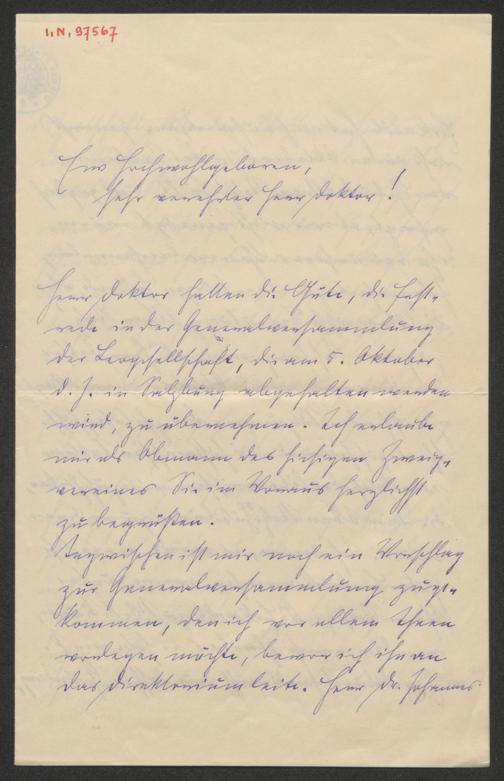 I.N. 97567
Euer Hochwohlgeboren,
sehr verehrter Herr Doktor!
Herr Doktor hatten die Güte, die Fest-
rede in der Generalversammlung
der Leogesellschaft, die am 5. Oktober
d. J. in Salzburg abgehalten werden
wird, zu übernehmen. Ich erlaube
mir als Obmann des hiesigen Zweig-
vereines Sie im Voraus herzlichst
zu begrüßen.
Inzwischen ist mir noch ein Vorschlag
zur Generalversammlung zuge-
kommen, den ich vor allem Ihnen
vorlegen möchte, bevor ich ihn an
das Direktorium leite. Herr Dr. Johannes